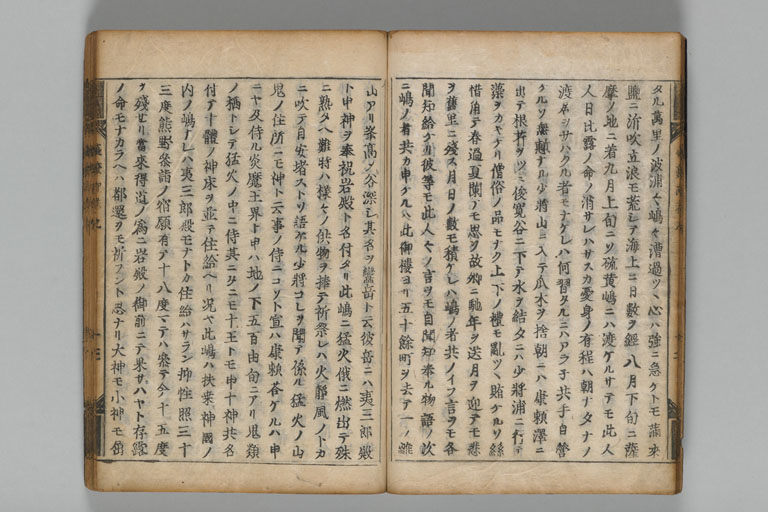 タル萬里ノ波浦々嶋々漕過ツヽ心ハ強ニ急ケトモ滿來
鹽ニ泝吹立浪モ荒シテ海上ニ日數ヲ經八月下旬ニ薩
摩ノ地ニ着九月上旬ニソ硫黄嶋ニハ渡ケルサテモ此人
人日比露ノ命ノ消サレハサスカ憂身ノ有程ハ朝ナタナノ
渡ヲサハクル者モナケレハ何習タルニハアラ子共手自營
クルソ無慙ナル少將山ニ入テ爪木ヲ捨朝ニハ康頼澤ニ
出テ根芹ヲツミ俊寛谷ニ下テ水ヲ結タニハ少將浦ニ行テ
藻ヲカヤケリ僧俗ノ品モナク上下ノ禮モ亂ツヽ賂ケルソ絲
惜角テ春過夏闌テモ思ヲ故郷ニ馳年ヲ送月ヲ迎テモ悲
ヲ舊里ニ殘ス月日ノ數モ積ケレハ嶋ノ者共ノイフ言ヲモ各
聞知給ケリ彼等モ此人々ノ言ヲモ自聞知奉ル物語ノ次
ニ嶋ノ者共カ申ケルハ此御棲ヨリ五十餘町ヲ去テ一ノ離
山アリ峯高ク谷深シ其名ヲ蠻岳ト云後岳ニハ夷三郎殿
ト申神ヲ奉祝岩殿ト名付タリ此嶋ニ猛火俄ニ燃出テ殊
ニ熟タヘ難特ハ様々ノ供物ヲ捧テ祈祭レハ火靜風ノトカ
ニ吹テ自安堵ストソ語ケル少將コレヲ聞テ係ル猛火ノ山
鬼ノ住所ニモ神ト云事ノ侍ニコソト宣ハ康頼荅ケルハ申
ニヤ及侍ル炎魔王界ト申ハ地ノ下五百由旬ニアリ鬼類
ノ栖トシテ猛火ノ中ニ侍其ニタニモ十王トモ申十神共名
付テ十體ノ神床ヲ並テ住給ヘリ況ヤ此嶋ハ扶桑神國ノ
内ノ嶋ナレハ夷三郎殿モナトカ住給ハサラン抑性照三十
三度熊野參詣ノ宿願有テ十八度マテハ參テ今十五度
ヲ殘セリ當來得道ノ爲ニ岩殿ノ御前ニテ果サハヤト存露
ノ命モナカラヘハ都還ヲモ祈ラント思ナリ大神モ小神モ